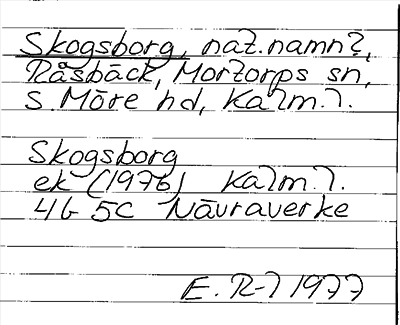 Skogsborg, nat.namn?,
Råsbäck, Mortorps sn,
S. Möre hd, Kalm. l.
Skogsborg
ek (1976) Kalm. l.
4G 5C Nävraverke
E. R-l 1977